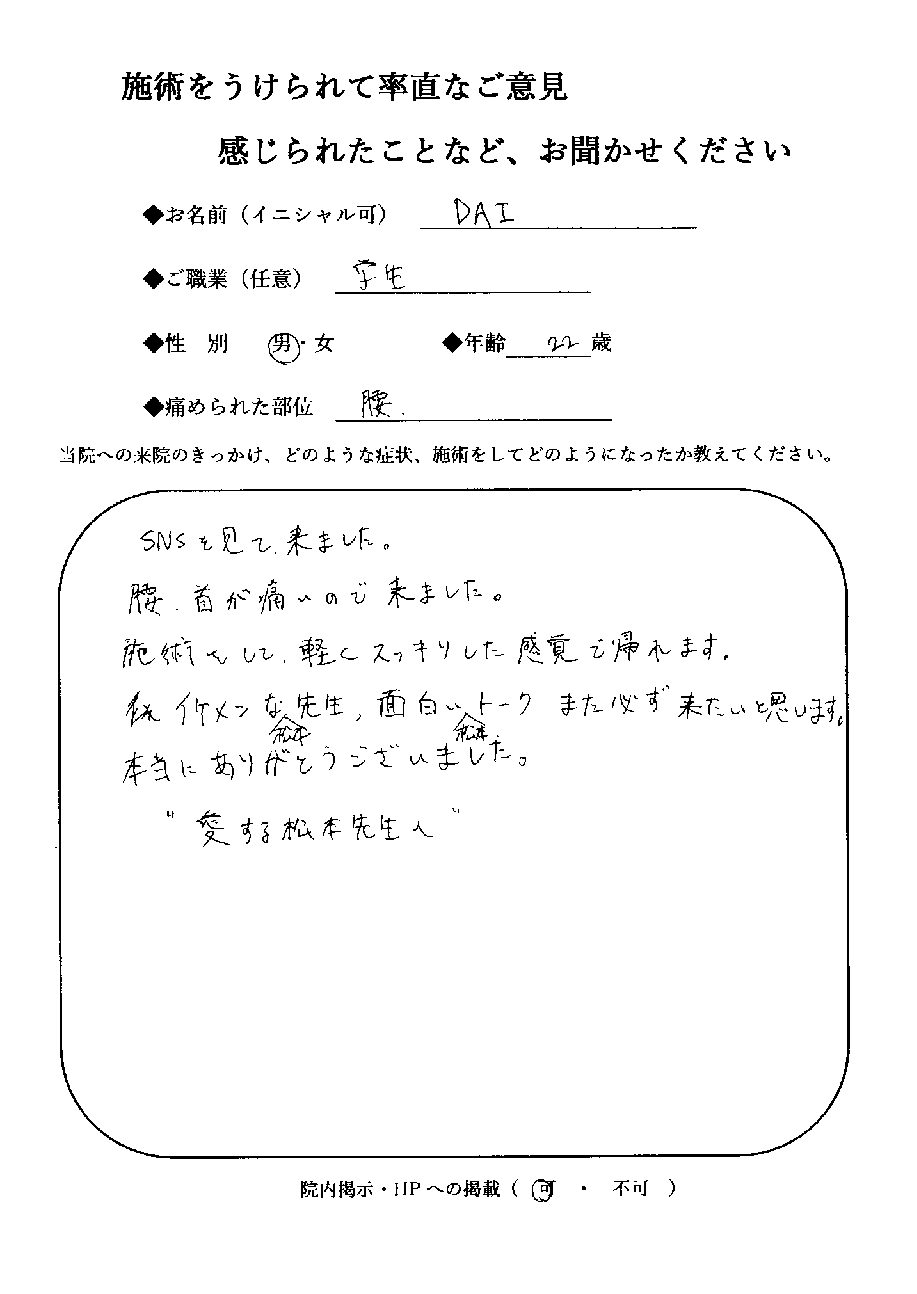 施術をうけられて率直なご意見
感じられたことなど、お聞かせください
◆お名前（イニシャル可） DAI
◆ご職業（任意） 学生
◆性 別 男・女 ◆年齢 22 歳
◆痛められた部位 腰.
当院への来院のきっかけ、どのような症状、施術をしてどのようになったか教えてください。
SNSを見て、来ました。
腰、首が痛いので来ました。
施術をして、軽くスッキリした感覚で帰れます。
イケメンな松本先生, 面白い松本トーク また必ず来たいと思います。
本当にありがとうございました。
"愛する松本先生へ"
院内掲示・HPへの掲載（ 可 ・ 不可 ）